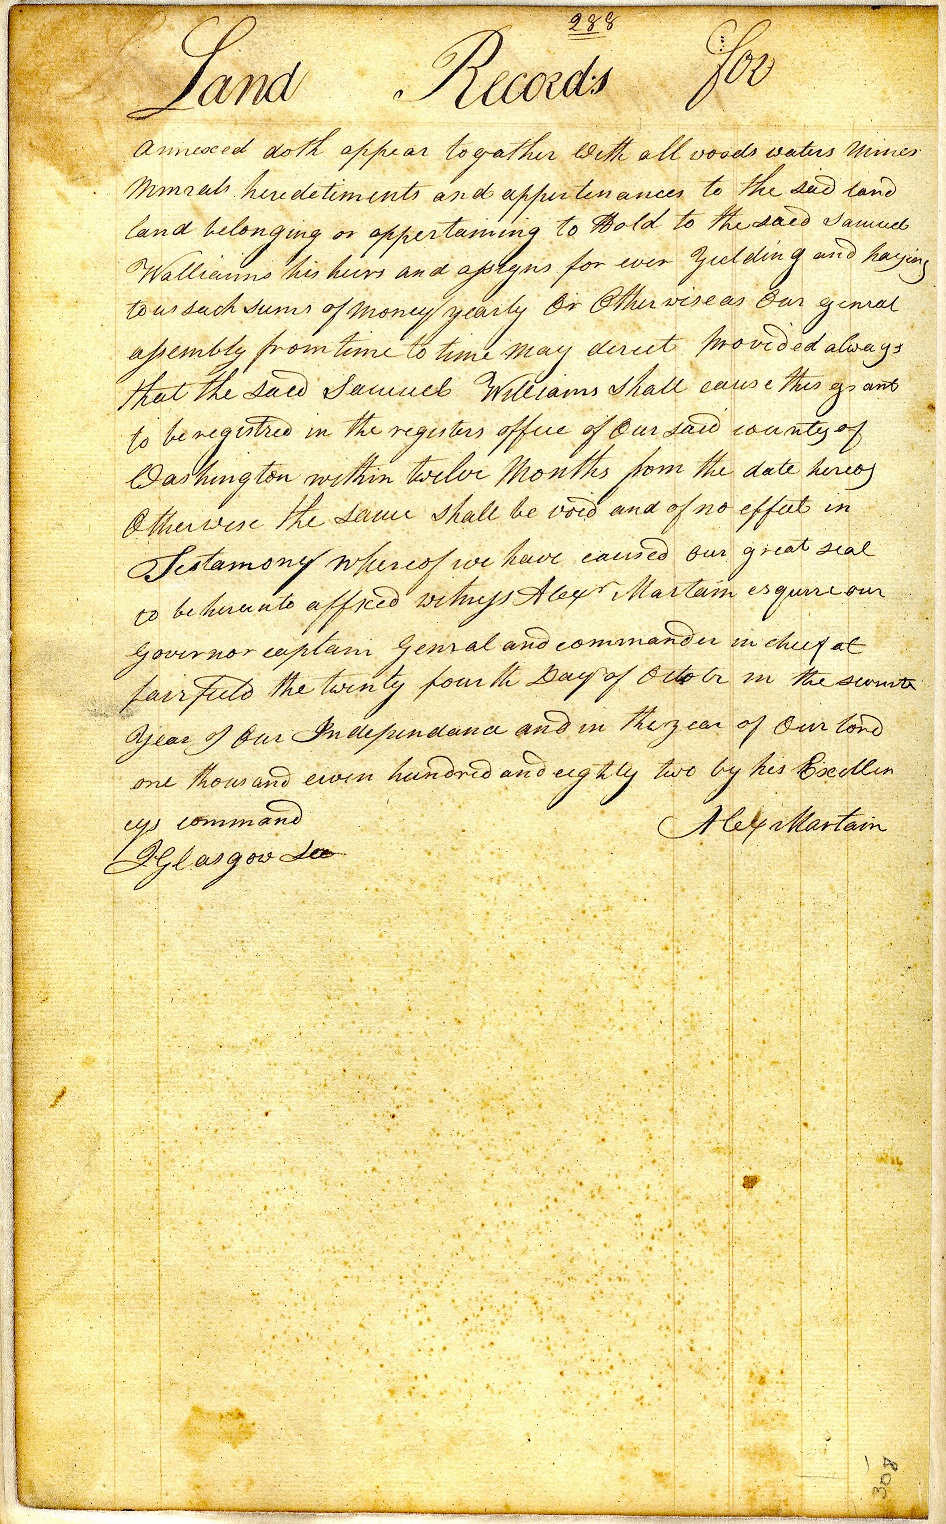 288
Land Records for
Annexed doth appear togather With all woods waters Mines
Minrals heredetiments and appertenances to the said land
land belonging or appertaining to Hold to the said Samuel
Walliams his heirs and assigns for ever Yielding and paying
to us such sums of Money yearly Or Otherwise as Our genral
assembly from time to time May derect Provided always
that the said Samuel Williams Shall cause this grant
to be registred in the registers office of Our said county of
Washington within twelve Months from the date hereof
Otherwise the same shall be void and of no effect in
Testamony whereof we have caused our great seal
to be hereunto affixed witness Alexr Martain esquire our
Governor captain Genral and commander in cheef at
fairfield the twenty fourth Day of Octobr in the
Year of Our Independance and in the year of Our lord
one thousand even hundred and eighty two by his Excellen
cys command Alex Martain
J Glasgow Sec
308